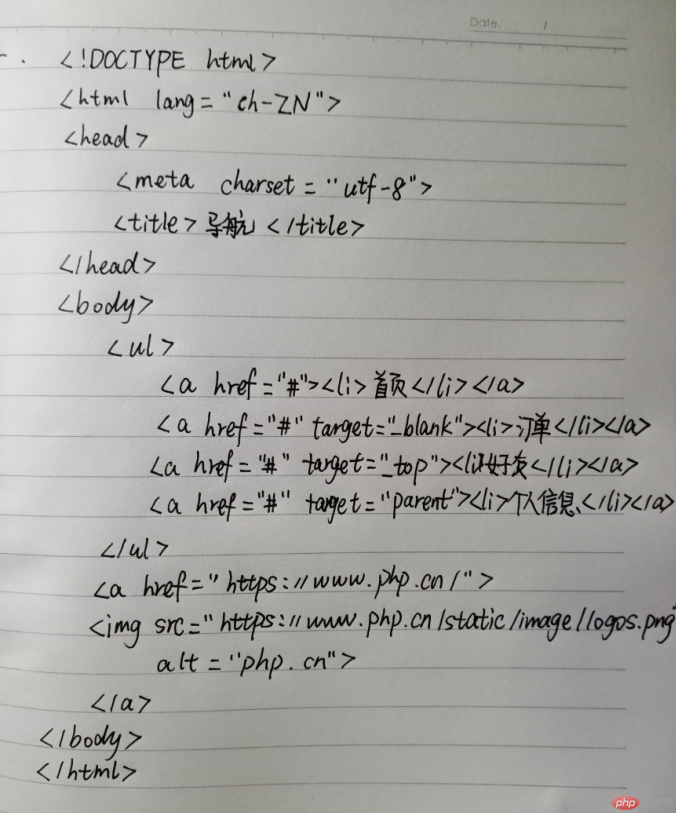 Date. /
一. <!DOCTYPE html>
<html lang="ch-ZN">
<head>
<meta charset="utf-8">
<title>导航</title>
</head>
<body>
<ul>
<a href="#"><li>首页</li></a>
<a href="#" target="_blank"><li>订单</li></a>
<a href="#" target="_top"><li>好友</li></a>
<a href="#" target="parent"><li>个人信息</li></a>
</ul>
<a href="https://www.php.cn/">
<img src="https://www.php.cn/static/image/logos.png"
alt="php.cn">
</a>
</body>
</html>
php